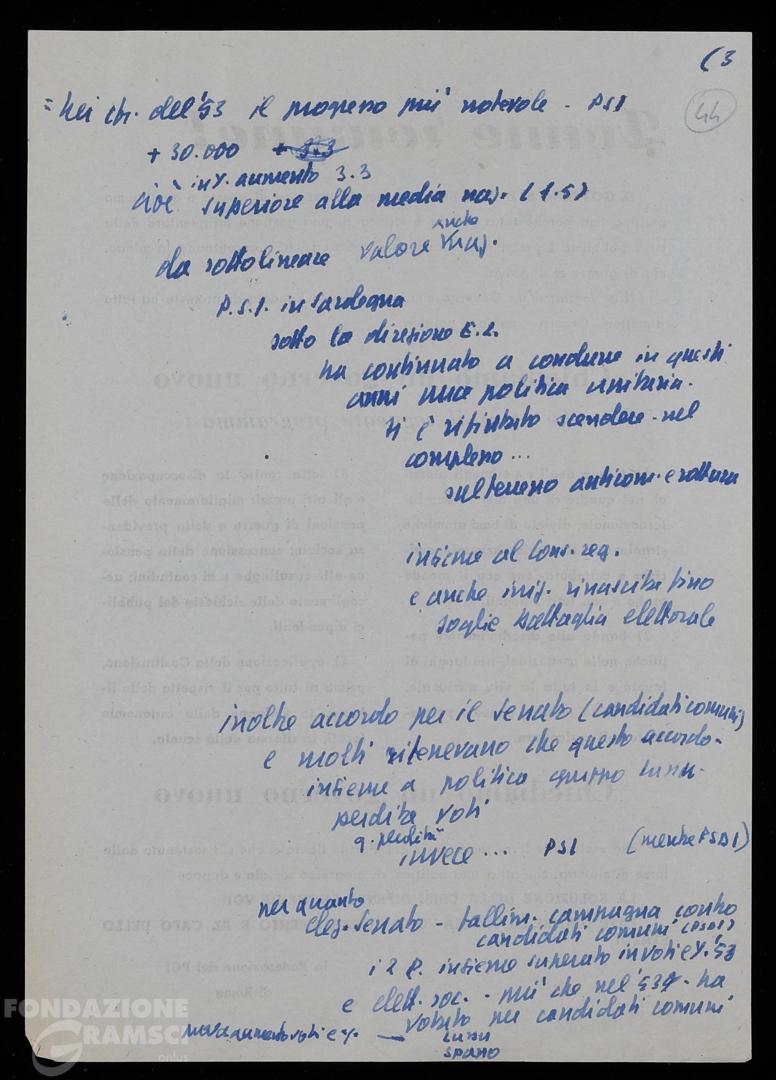 (3
44
= nei cfr. del '53 il progresso più notevole - PSI
+ 30.000 + 3.3
in % aumento 3.3
cioè superiore alla media naz. (1.5)
da sottolineare valore anche naz.
P.S.I. in Sardegna
sotto la direzione E.L.
ha continuato a condurre in questi
anni una politica unitaria.
si è rifiutato scendere - nel
complesso ...
sul terreno anticom. e rottura
insieme al Cons. reg.
e anche iniz. rinascita fino
soglie battaglia elettorale
inoltre accordo per il Senato (candidati comuni)
e molti ritenevano che questo accordo -
insieme a politica
perdita voti
q. perdita
invece ... PSI (mentre PSDI)
per quanto
elez. Senato - fallim. campagna contro
candidati comuni (PSDI)
i 2 p. insieme superato in voti e % '53
e elett. soc. - più che nel '53 - ha
votato per candidati comuni
aumento voti e % — Lussu
Spano
FONDAZIONE
GRAMSCI
onlus